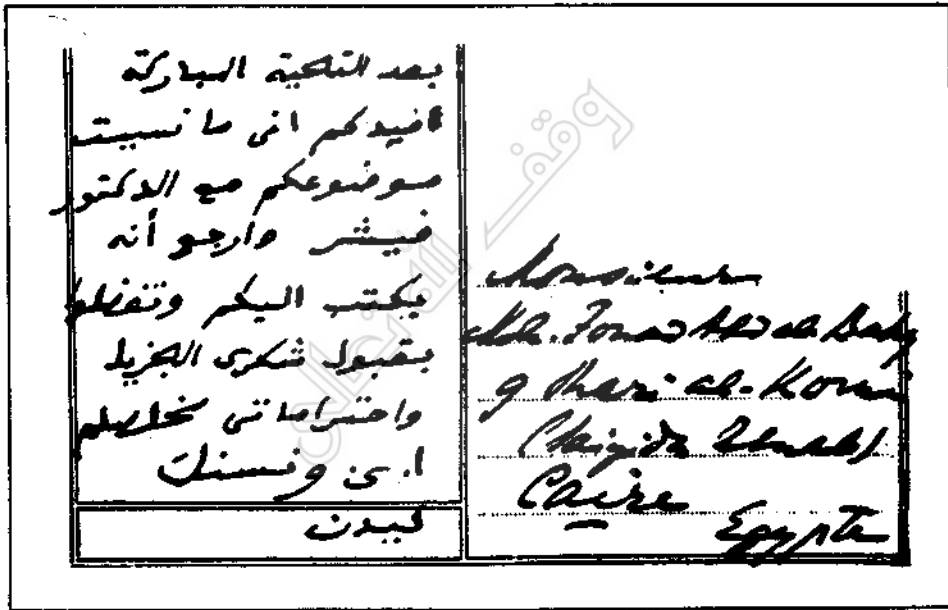 بعد التحية المباركة
أفيدكم انى ما نسيت
موضوعكم مع الدكتور
فيشر وأرجو أنه
يكتب اليكم وتتفضلوا
بقبول شكرى الجزيل
واحتراماتى مخلصكم
ا. ى ونسنك
ليدن
Monsieur
Moh. Fouad Abd al-Baky
9 Shari al-Komi
(Sayida Zenab)
Caire
Egypte